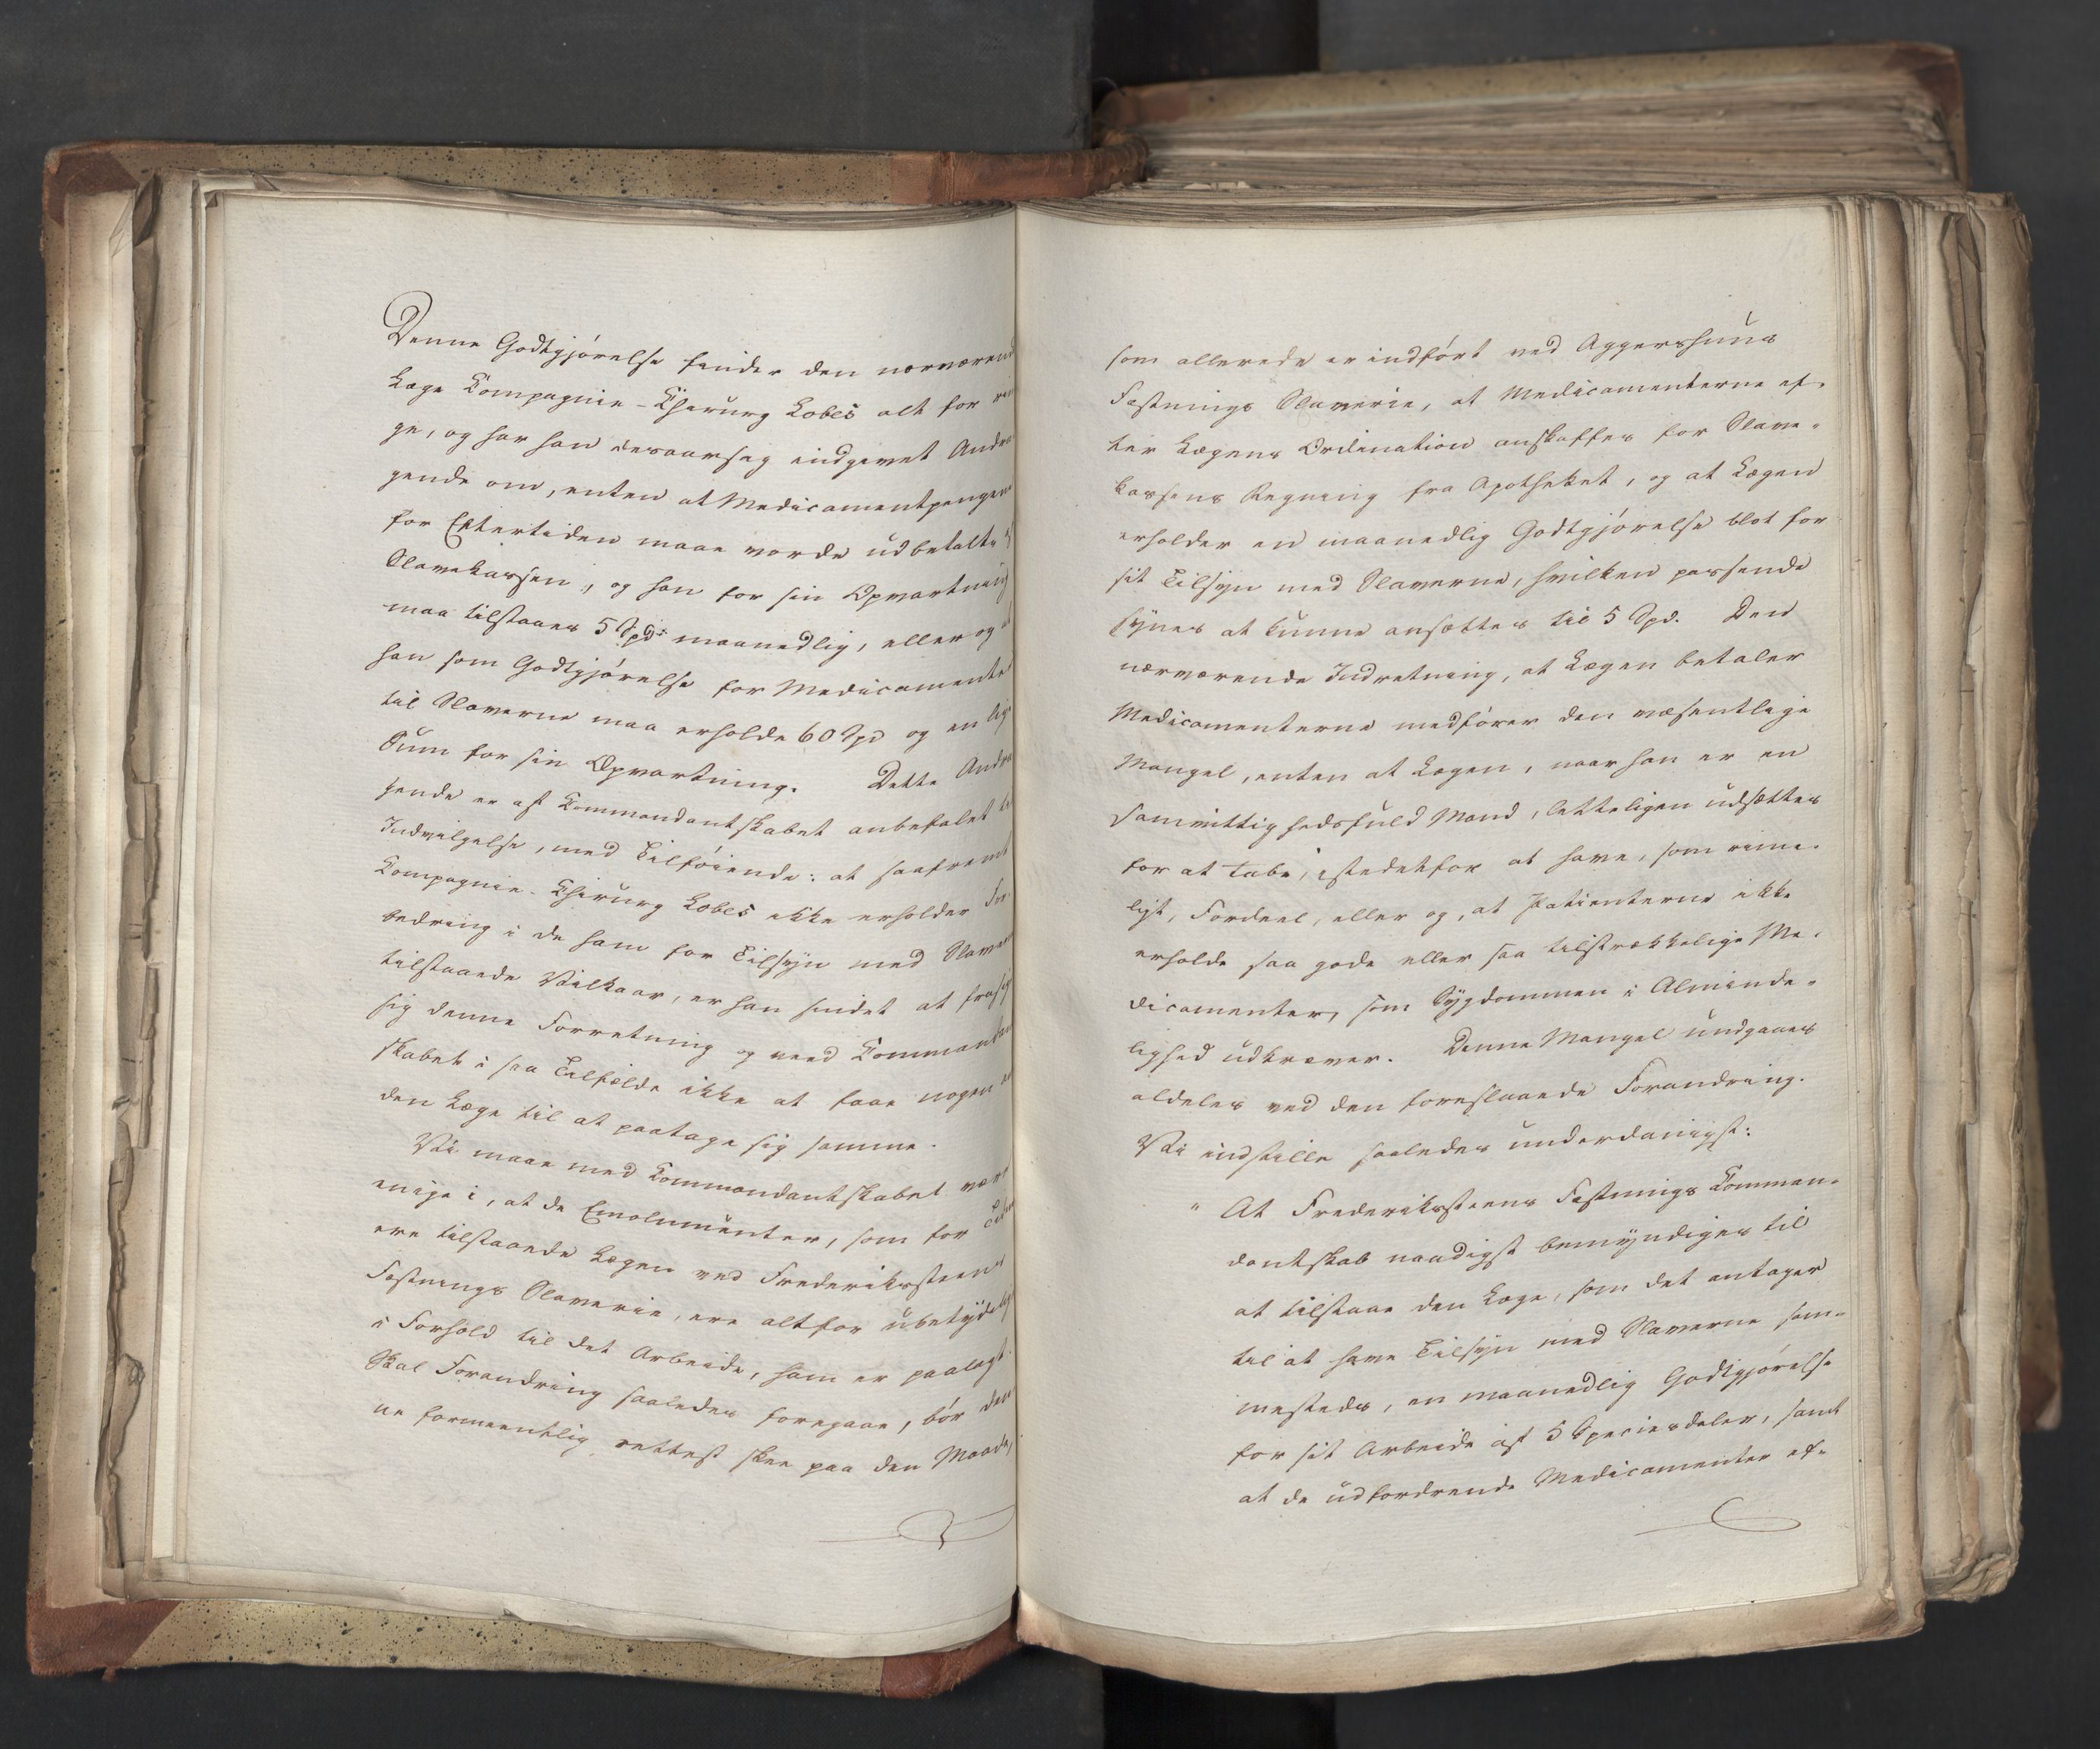 Denne Godtgjórelse finder den nærværend
Læge Compagnie-Chirurg Lobes alt for rin
ge, og har han desaarsag indgivet Andra
gende om, enten at Medicamentpengene
for Eftertiden maae vorde udbetalte
Slavekassen, og han for sin Opvartning
maa tilstaaes 5 Spd: maanedlig, eller og at
han som Godtgjórelse for Medicamenter
til Slaverne maa erholde 60 Spd og en lige
Sum for sin Opvartning. Dette Andra
gende er af Commandantskabet anbefalet til
Indvilgelse, med Tilföiende: at saafremt
Compagnie-Chirurg Lobes ikke erholder For-
bedring i de ham for Tilsyn med Slaverne
tilstaaede Vilkaar, er han sindet at frasige
sig denne Forretning og veed Commandant
skabet i saa Tilfælde ikke at faae nogen an
den Læge til at paatage sig samme.
Vi maae med Commandantskabet være
enige i, at de Emolumenter, som for Tiden
ere tilstaaede Lægen ved Frederikssteens
Fæstnings Slaverie, ere altfor ubetydelige
i Forhold til det Arbeide, ham er paalagt.
Skal Forandring saaledes foregaae, bór den
ne formeentlig rettest skee paa den Maade,
som allerede er indfórt ved Aggershuus
Fæstnings Slaverie, at Medicamenterne ef-
ter Lægens Ordination anskaffes for Slave-
kassens Regning fra Apotheket, og at Lægen
erholder en maanedlig Godtgjórelse blot for
sit Tilsyn med Slaverne, hvilken passende
synes at kunne ansættes til 5 Spd. Den
nærværende Indretning, at Lægen betaler
Medicamenterne medfórer den væsentlige
Mangel, enten at Lægen, naar han er en
samvittighedsfuld Mand, letteligen udsættes
for at tabe, istedetfor at have, som rime-
ligt, Fordeel, eller og, at Patienterne ikke
erholde saa gode eller saa tilstrækkelige Me-
dicamenter, som Sygdommen i Alminde-
lighed udkræver. Denne Mangel undgaaes
aldeles ved den foreslaaede Forandring.
Vi indstille saaledes underdanigst:
" At Frederikssteens Fæstnings Comman-
dantskab naadigst bemyndiges til
at tilstaae den Læge, som det antager
til at have Tilsyn med Slaverne sam-
mesteds, en maanedlig Godtgjórelse
for sit Arbeide af 5 Speciesdaler, samt
at de udfordrende Medicamenter ef-